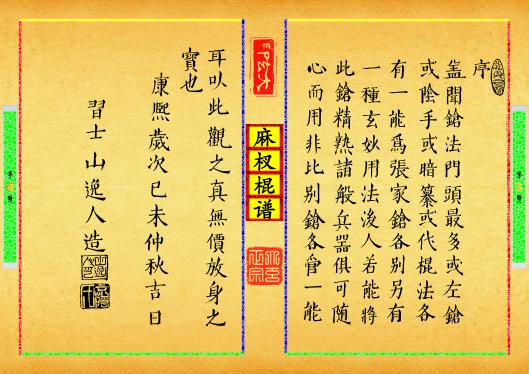 序
蓋聞鎗法門頭最多或左鎗
或陰手或暗纂或代棍法各
有一能爲張家鎗各别另有
一種玄妙用法後人若能將
此鎗精熟諸般兵器俱可随
心而用非比别鎗各管一能
麻杈棍谱
耳以此觀之真無價放身之
寳也
康熙歲次已未仲秋吉日
習士山逸人造